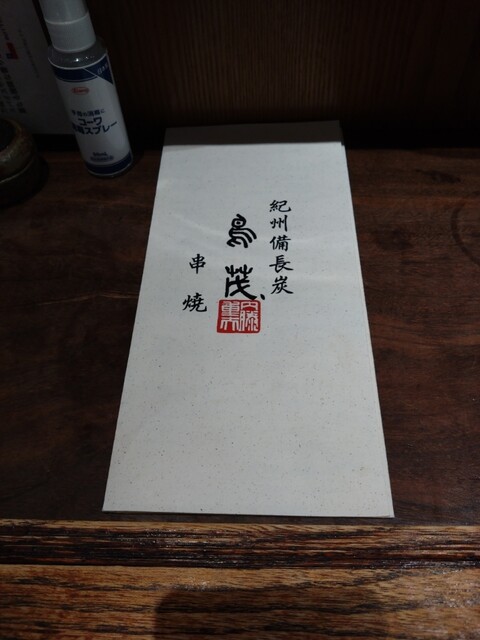 紀州備長炭
鳥茂
串焼
内藤
Kowa
手指の消毒に
コーワ
消毒スプレー